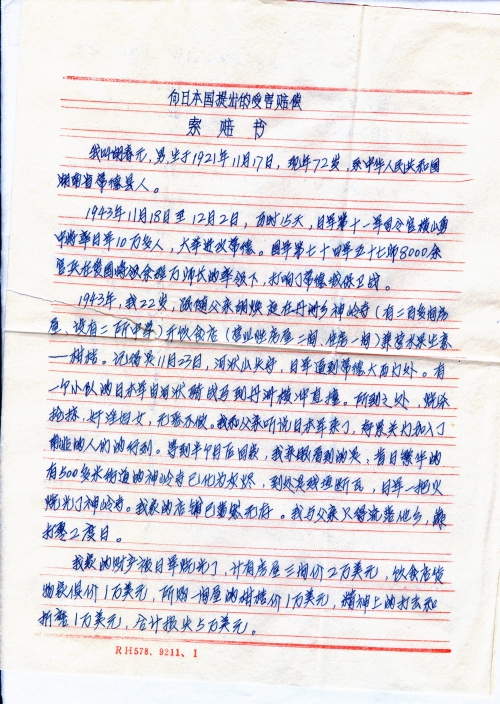 向日本国提出的受害赔偿
索赔书
我叫胡春元，男，生于1921年11月17日，现年72岁，系中华人民共和国
湖南省常德县人。
1943年11月18日至12月2日，历时15天，日军第十一军司令官横山勇
中将率日军10万多人，大举进攻常德。国军第七十四军五十七师8000余
官兵在黄国 余程万师长的率领下，打响了常德城保卫战。
1943年，我22岁，跟随父亲胡 在丹洲乡神岭寺（有二百多间房
屋，设有二所中学）开饮食店（营业性房屋二间，住房一间）兼营水果生意
——柑桔。记得
11月23日，河洑山失守，日军逼到常德大西门外。有
一个小队的日本军由河洑骑战马到丹洲横冲直撞。所到之处，烧杀
抢掠，奸淫妇女，无恶不做。我和父亲听说日本军来了，将东关门加入了
的人们的行列。等到半个月后回家，我亲眼看到的是，昔日繁华的
有500多米街道的神岭寺已化为灰烬，到处是残垣断瓦，日军一把火
烧光了神岭寺。我家的店铺已荡然无存。我与父亲只得流落他乡，靠
打零工度日。
我家的财产被日军烧光了，计有房屋三间价2万美元，饮食店货
物家俱价1万美元，所购一间屋的柑桔价1万美元，精神上的打击和
折磨1万美元，合计损失5万美元。
RH578. 9211、1